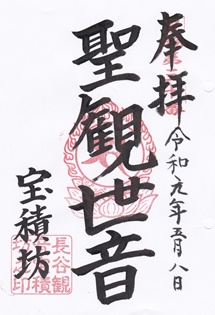 奉拝
令和元年五月八日
聖観世音
宝積坊
長谷観